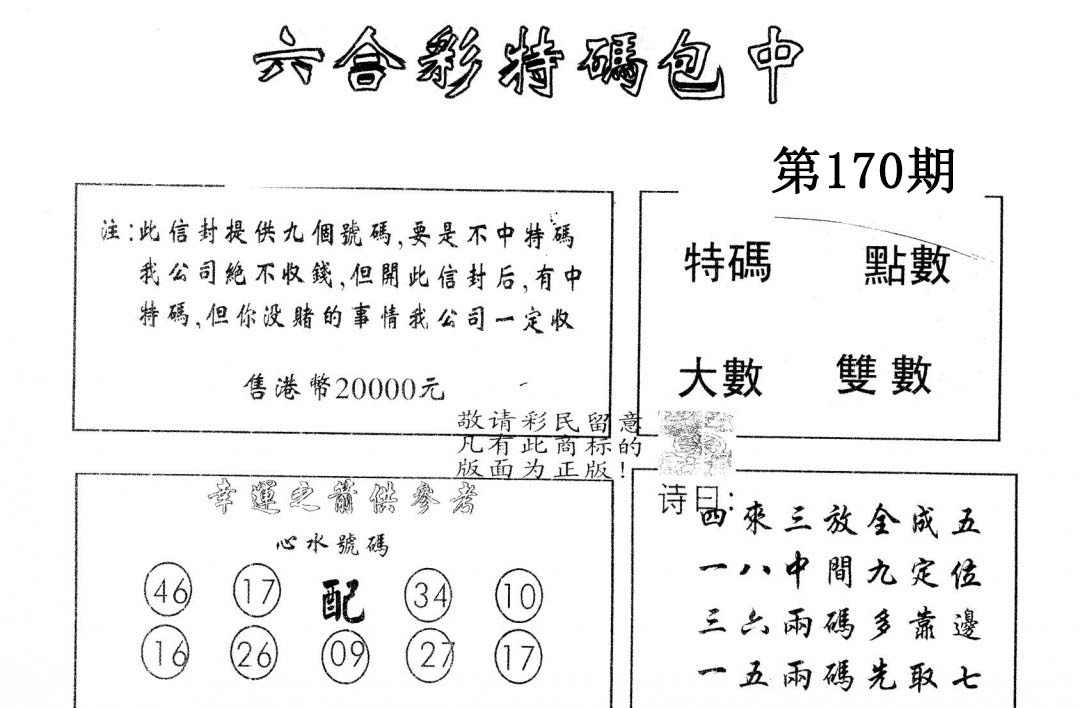 六合彩特碼包中
第170期
注:此信封提供九個號碼,要是不中特碼
我公司絕不收錢,但開此信封后,有中
特碼,但你没賭的事情我公司一定收
售港幣20000元
特碼 點數
大數 雙數
敬请彩民留意
凡有此商标的
版面为正版!
幸運之箭供參考
心水號碼
46 17 配 34 10
16 26 09 27 17
诗曰:
四來三放全成五
一八中間九定位
三六兩碼多靠邊
一五兩碼先取七